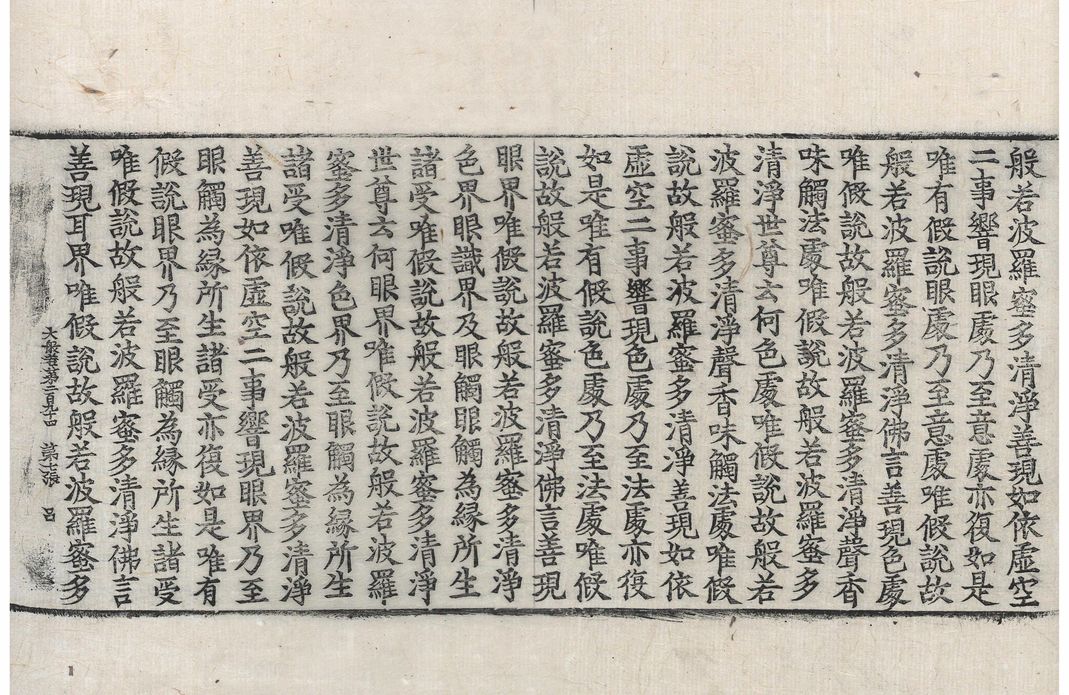 般若波羅蜜多清淨善現如依虛空
二事響現眼處乃至意處亦復如是
唯有假說眼處乃至意處唯假說故
般若波羅蜜多清淨佛言善現色處
唯假說故般若波羅蜜多清淨聲香
味觸法處唯假說故般若波羅蜜多
清淨世尊云何色處唯假說故般若
波羅蜜多清淨聲香味觸法處唯假
說故般若波羅蜜多清淨善現如依
虛空二事響現色處乃至法處亦復
如是唯有假說色處乃至法處唯假
說故般若波羅蜜多清淨佛言善現
眼界唯假說故般若波羅蜜多清淨
色界眼識界及眼觸眼觸為緣所生
諸受唯假說故般若波羅蜜多清淨
世尊云何眼界唯假說故般若波羅
蜜多清淨色界乃至眼觸為緣所生
諸受唯假說故般若波羅蜜多清淨
善現如依虛空二事響現眼界乃至
眼觸為緣所生諸受亦復如是唯有
假說眼界乃至眼觸為緣所生諸受
唯假說故般若波羅蜜多清淨佛言
善現耳界唯假說故般若波羅蜜多
大般若第二百九十四 第張 呂